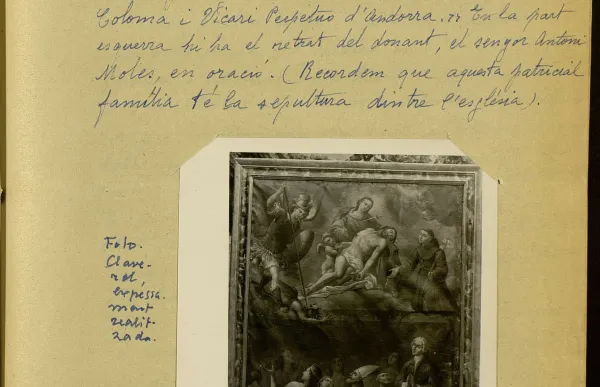 Coloma i Vicari Perpetuo d'Andorra. En la part
esquerra hi ha el retrat del donant, el senyor Antoni
Moles, en oració. (Recordem que aquesta patricial
família té la sepultura dintre l'església).
Foto.
Clave-
rol,
expessa.
ment
realit-
zada.